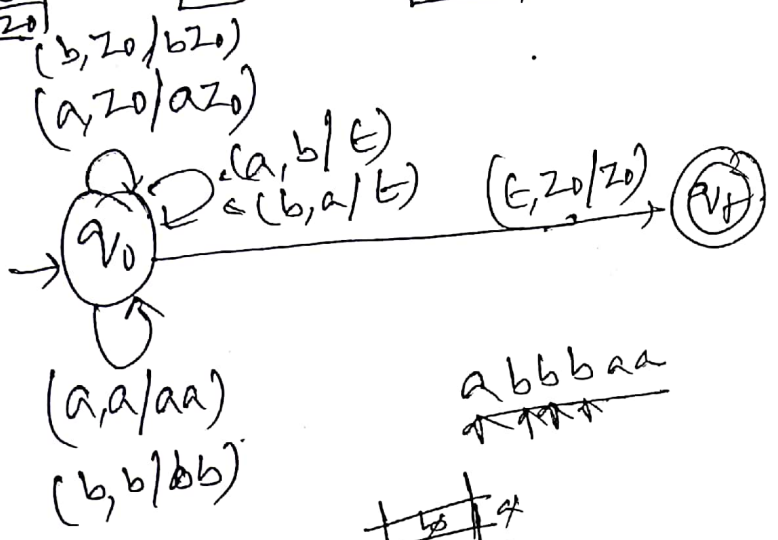 z0
(b, z0 / bz0)
(a, z0 / az0)
(a, b / ε)
(b, a / ε)
(ε, z0 / z0)
q0
qf
(a, a / aa)
(b, b / bb)
abbbaa